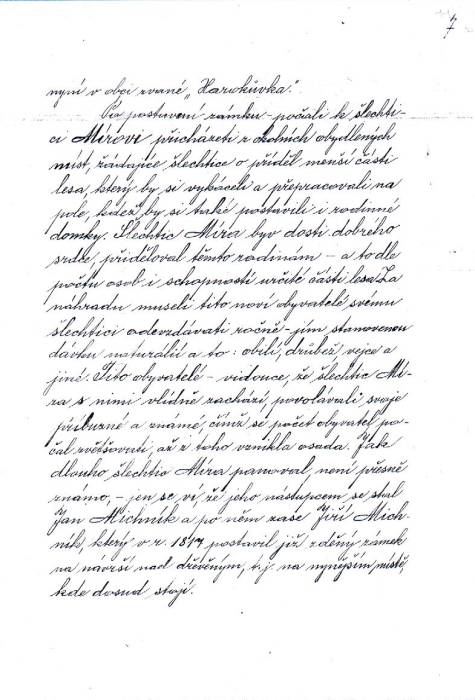 7
nyní v obci zvané „Harwkůvka".
Po postavení zámku – počali k šlechti-
ci Mírovi přicházeti z okolních obydlených
míst, žádajíce šlechtice o příděl menší části
lesa, který by si vykáceli a přepracovali na
pole, kdež by si také postavili i rodinné
domky. Šlechtic Míra byv dosti dobrého
srdce, přiděloval těmto rodinám – a to dle
počtu osob i schopností určité části lesa. Za
náhradu museli tito noví obyvatelé svému
šlechtici odevzdávati ročně – jím stanovenou
dávku naturálií a to: obilí, drůbež, vejce a
jiné. Tito obyvatelé – vidouce, že šlechtic Mí-
ra s nimi vlídně zachází, povolávali svoje
příbuzné a známé, čímž se počet obyvatel po-
čal zvětšovati, až z toho vznikla osada. Jak
dlouho šlechtic Míra panoval, není přesně
známo, – jen se ví, že jeho nástupcem se stal
Jan Michník a po něm zase Jiří Mich-
ník, který v r. 1817, postavil již zděný zámek
na návrší nad dřevěným, t.j. na nynějším místě,
kde dosud stojí.